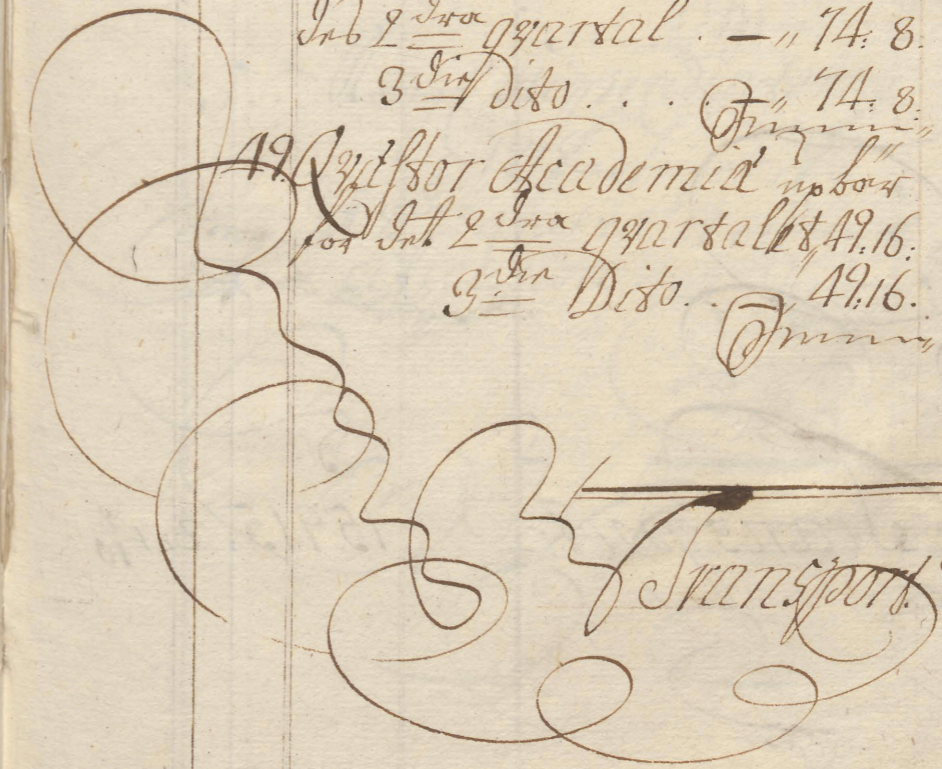 des 2 dra qvartal . — „ 74: 8:
3 die Dito . . . . — „ 74: 8:
Summa
49. Qvæstor Academiæ upbär
för det 2 dra qvartalet „ 49:16:
3 die Dito . . — „ 49:16.
Summa
Transport.